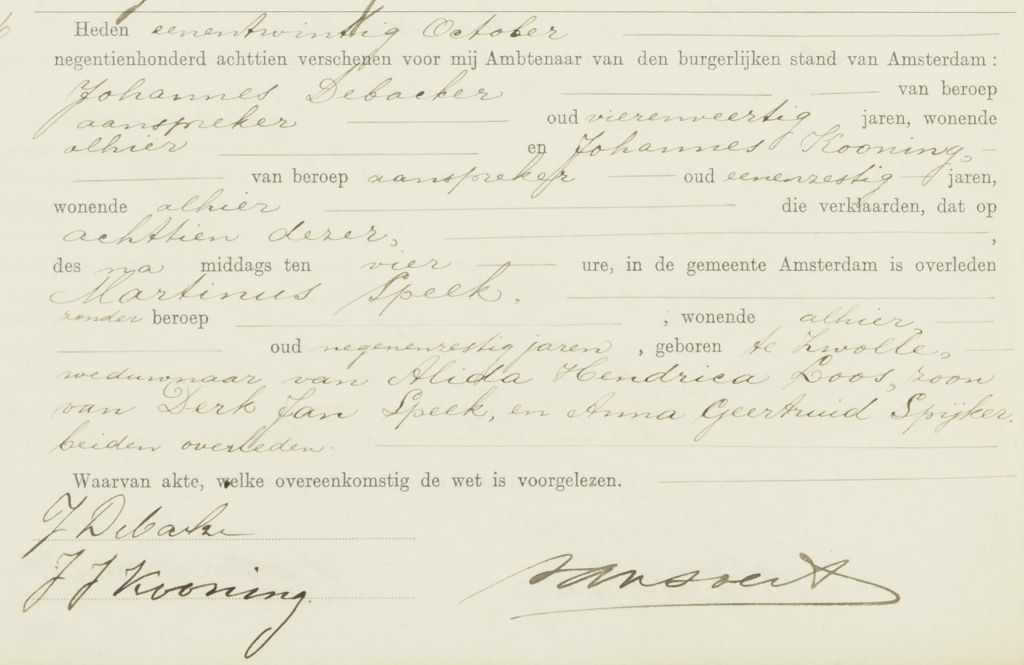 Heden eenentwintig October
negentienhonderd achttien verschenen voor mij Ambtenaar van den burgerlijken stand van Amsterdam :
Johannes Debacker van beroep
aanspreker oud vierenveertig jaren, wonende
alhier en Johannes Kooning,
van beroep aanspreker oud eenenzestig jaren,
wonende alhier die verklaarden, dat op
achttien dezer, ,
des na middags ten vier ure, in de gemeente Amsterdam is overleden
Martinus Speek,
zonder beroep , wonende alhier,
oud negenenzestig jaren , geboren te Zwolle,
weduwnaar van Alida Hendrica Loos, zoon
van Derk Jan Speek, en Anna Geertruid Spijker,
beiden overleden.
Waarvan akte, welke overeenkomstig de wet is voorgelezen.
J Debacker
J J Kooning